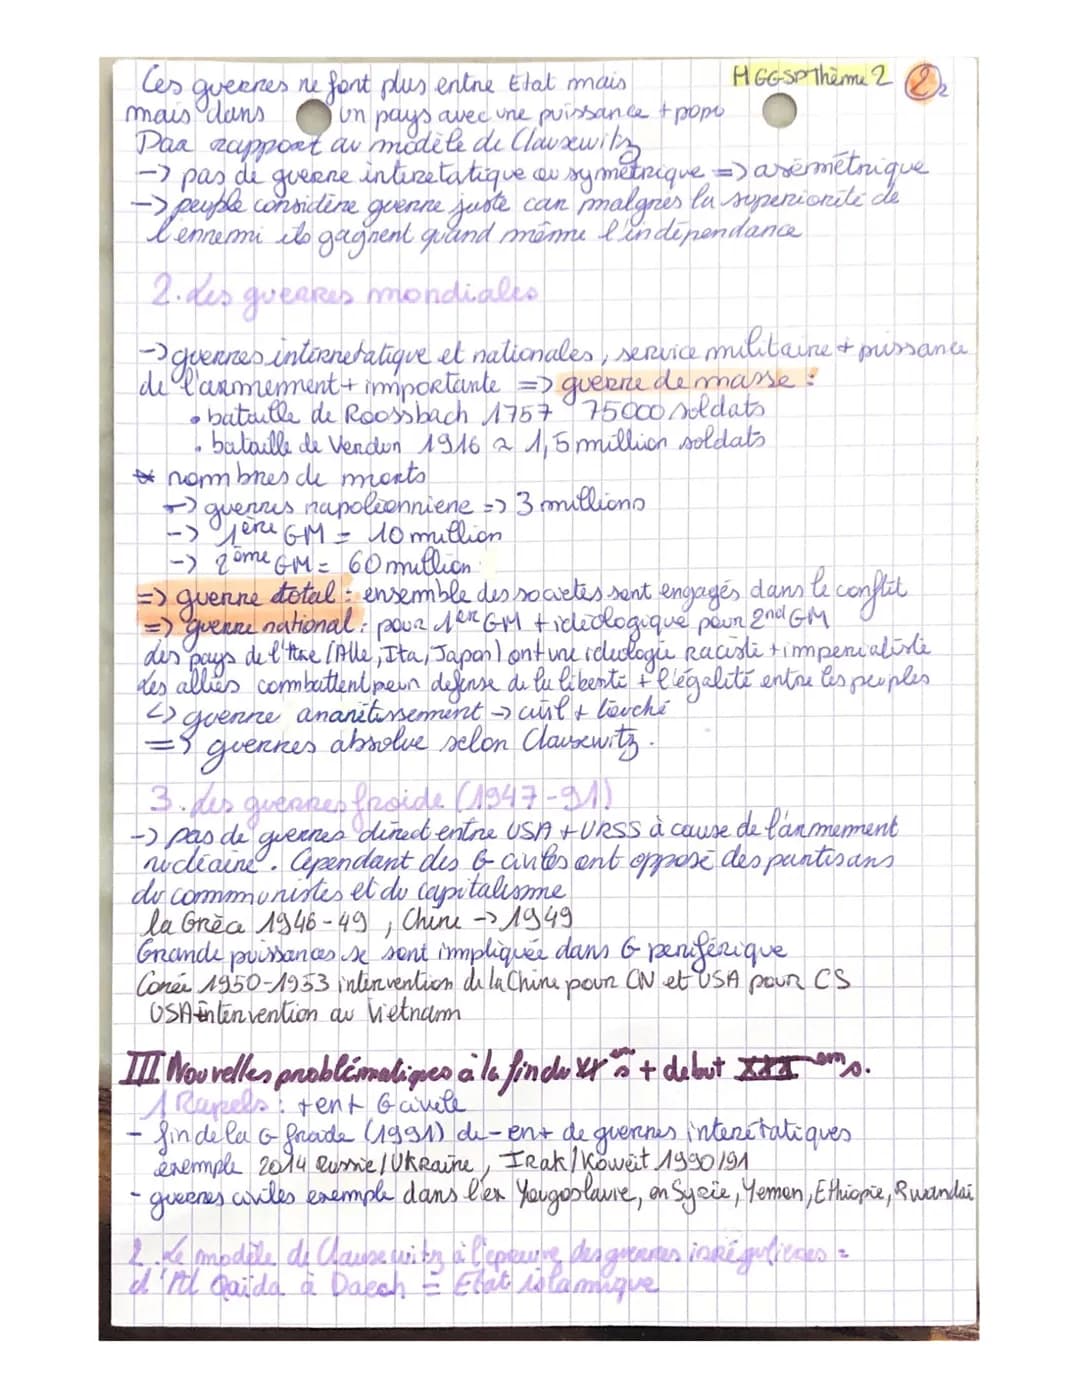 Ces guerres ne font plus entre Etat mais
HGGSP Thème 2
2
mais dans un pays avec une puissance + popu
Par rapport au modèle de Clausewitz
-> pas de guerre interetatique ou symétrique => asémétrique
-> peuple considère guerre juste car malgres la superiorité de
l'ennemi ils gagnent quand même l'indépendance
2. Les guerres mondiales
-> guerres internetatique et nationales, service militaire + puissance
de l'armement + importante => guerre de masse :
• bataille de Roossbach 1757 75000 soldats
• bataille de Verdun 1916 ≈ 1,5 million soldats
* nombres de morts
-> guerres napoléonniene => 3 millions
-> 1ère GM = 10 million
-> 2ème GM = 60 million
=> guerre total : ensemble des societes sont engagés dans le conflit
=> guerre national : pour 1er GM + idéologique pour 2nd GM
des pays de l'Axe (Alle, Ita, Japon) ont une ideologie raciste + imperialiste
Les alliés combattent pour defense de la liberté + l'égalité entre les peuples
guerre ananétissement -> civil + touché
=> guerres absolue selon Clausewitz.
3. Les guerres froide (1947-91)
-> pas de guerres direct entre USA + URSS à cause de l'armement
nucléaire. Cependant des G civiles ont opposé des partisans
du communistes et du capitalisme
la Grèce 1946-49, Chine -> 1949
Grande puissances se sont impliquée dans G periférique
Corée 1950-1953 intervention de la Chine pour CN et USA pour CS
USA intervention au Vietnam
III Nouvelles problématiques à la fin du XXème s + debut ème s.
1 Rapels : + en + G civile
- fin de la G froide (1991) de - en + de guerres interétatiques
exemple 2014 Russie/Ukraine, Irak/Koweit 1990/91
- guerres civiles exemple dans l'ex Yougoslavie, en Syrie, Yemen, Ethiopie, Rwanda
2. Le modèle de Clausewitz à l'epreuve des guerres irrégulieres =
d'Al Qaïda à Daech = Etat islamique